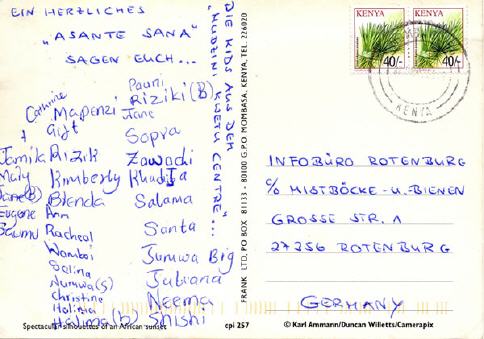 EIN HERZLICHES
„ASANTE SANA“
SAGEN EUCH...
DIE KIDS AUS DEM
„MUDZINI KWETU CENTRE“...
Catherine
+
Gift
Jamila
Mary
Jane(b)
Eugene
Baumu
Mapenzi
Rizik
Kimberly
Brenda
Ann
Racheal
Wamboi
Salina
Jumwa(s)
Christine
Halima
Halima(b)
Pauni
Riziki(B)
Jane
Sopra
Zawadi
Khadija
Salama
Santa
Jumwa Big
Juliana
Neema
Shishi
FRANK LTD, PO BOX 81133 - 80100 G.P.O MOMBASA, KENYA, TEL. 226020
KENYA
40/-
KENYA
40/-
KENYA
INFOBÜRO ROTENBURG
C/o MISTBÖCKE-U.-BIENEN
GROSSE STR. 1
27356 ROTENBURG
GERMANY
Spectacular silhouettes of an African sunset
cpi 257
© Karl Ammann/Duncan Willetts/Camerapix